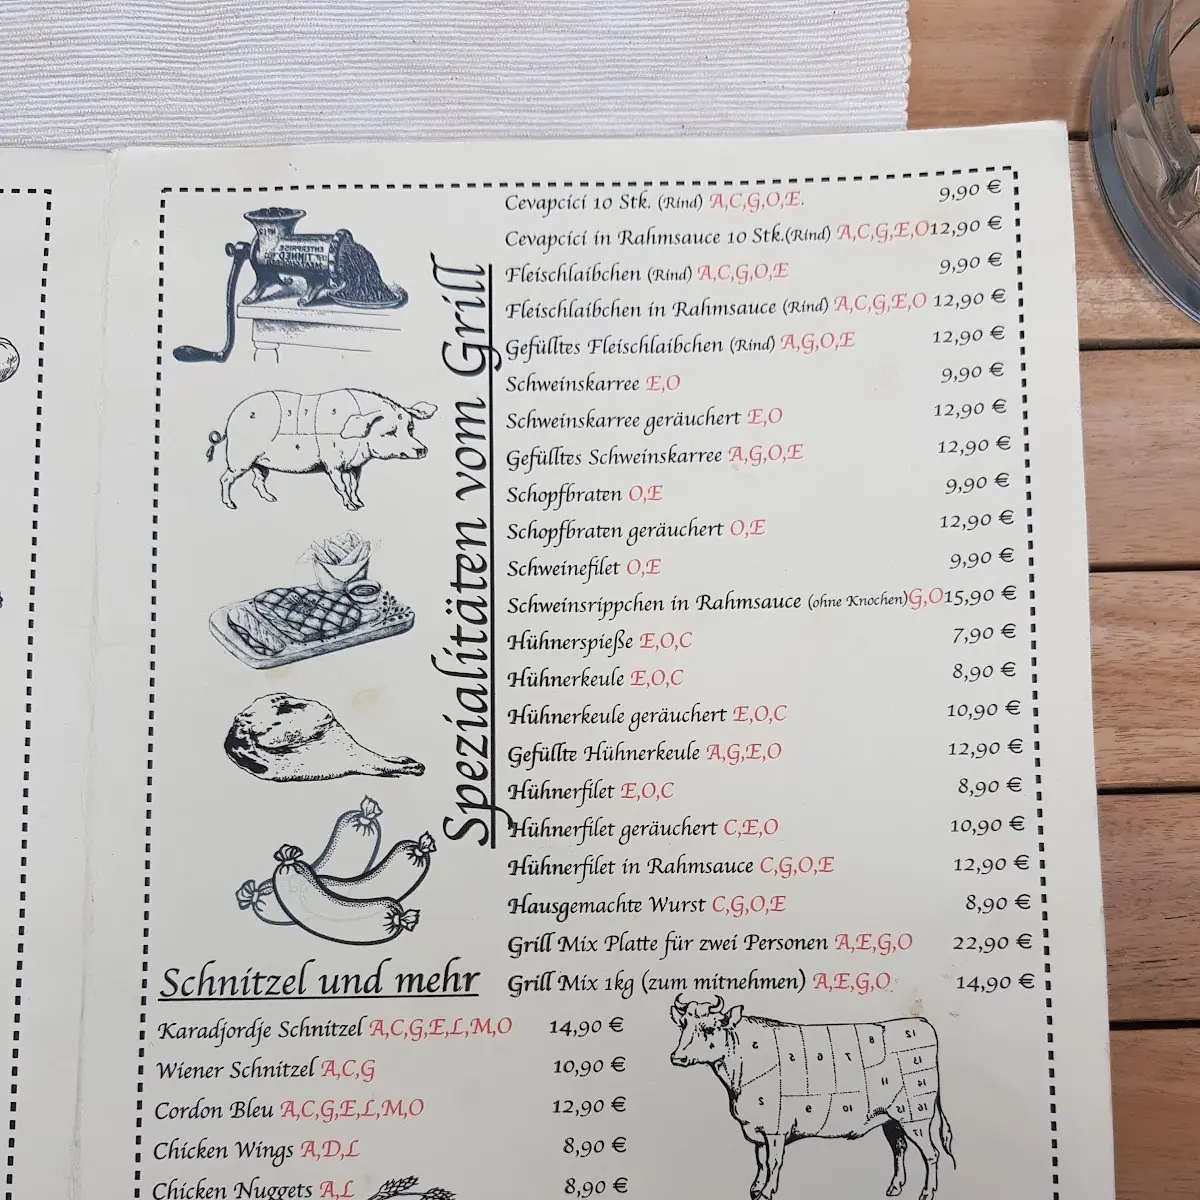 Spezialitäten vom Grill
Cevapcici 10 Stk. (Rind) A,C,G,O,E. 9,90 €
Cevapcici in Rahmsauce 10 Stk.(Rind) A,C,G,E,O 12,90 €
Fleischlaibchen (Rind) A,C,G,O,E 9,90 €
Fleischlaibchen in Rahmsauce (Rind) A,C,G,E,O 12,90 €
Gefülltes Fleischlaibchen (Rind) A,G,O,E 12,90 €
Schweinskarree E,O 9,90 €
Schweinskarree geräuchert E,O 12,90 €
Gefülltes Schweinskarree A,G,O,E 12,90 €
Schopfbraten O,E 9,90 €
Schopfbraten geräuchert O,E 12,90 €
Schweinefilet O,E 9,90 €
Schweinsrippchen in Rahmsauce (ohne Knochen)G,O 15,90 €
Hühnerspieße E,O,C 7,90 €
Hühnerkeule E,O,C 8,90 €
Hühnerkeule geräuchert E,O,C 10,90 €
Gefüllte Hühnerkeule A,G,E,O 12,90 €
Hühnerfilet E,O,C 8,90 €
Hühnerfilet geräuchert C,E,O 10,90 €
Hühnerfilet in Rahmsauce C,G,O,E 12,90 €
Hausgemachte Wurst C,G,O,E 8,90 €
Grill Mix Platte für zwei Personen A,E,G,O 22,90 €
Grill Mix 1kg (zum mitnehmen) A,E,G,O 14,90 €
Schnitzel und mehr
Karadjordje Schnitzel A,C,G,E,L,M,O 14,90 €
Wiener Schnitzel A,C,G 10,90 €
Cordon Bleu A,C,G,E,L,M,O 12,90 €
Chicken Wings A,D,L 8,90 €
Chicken Nuggets A,L 8,90 €